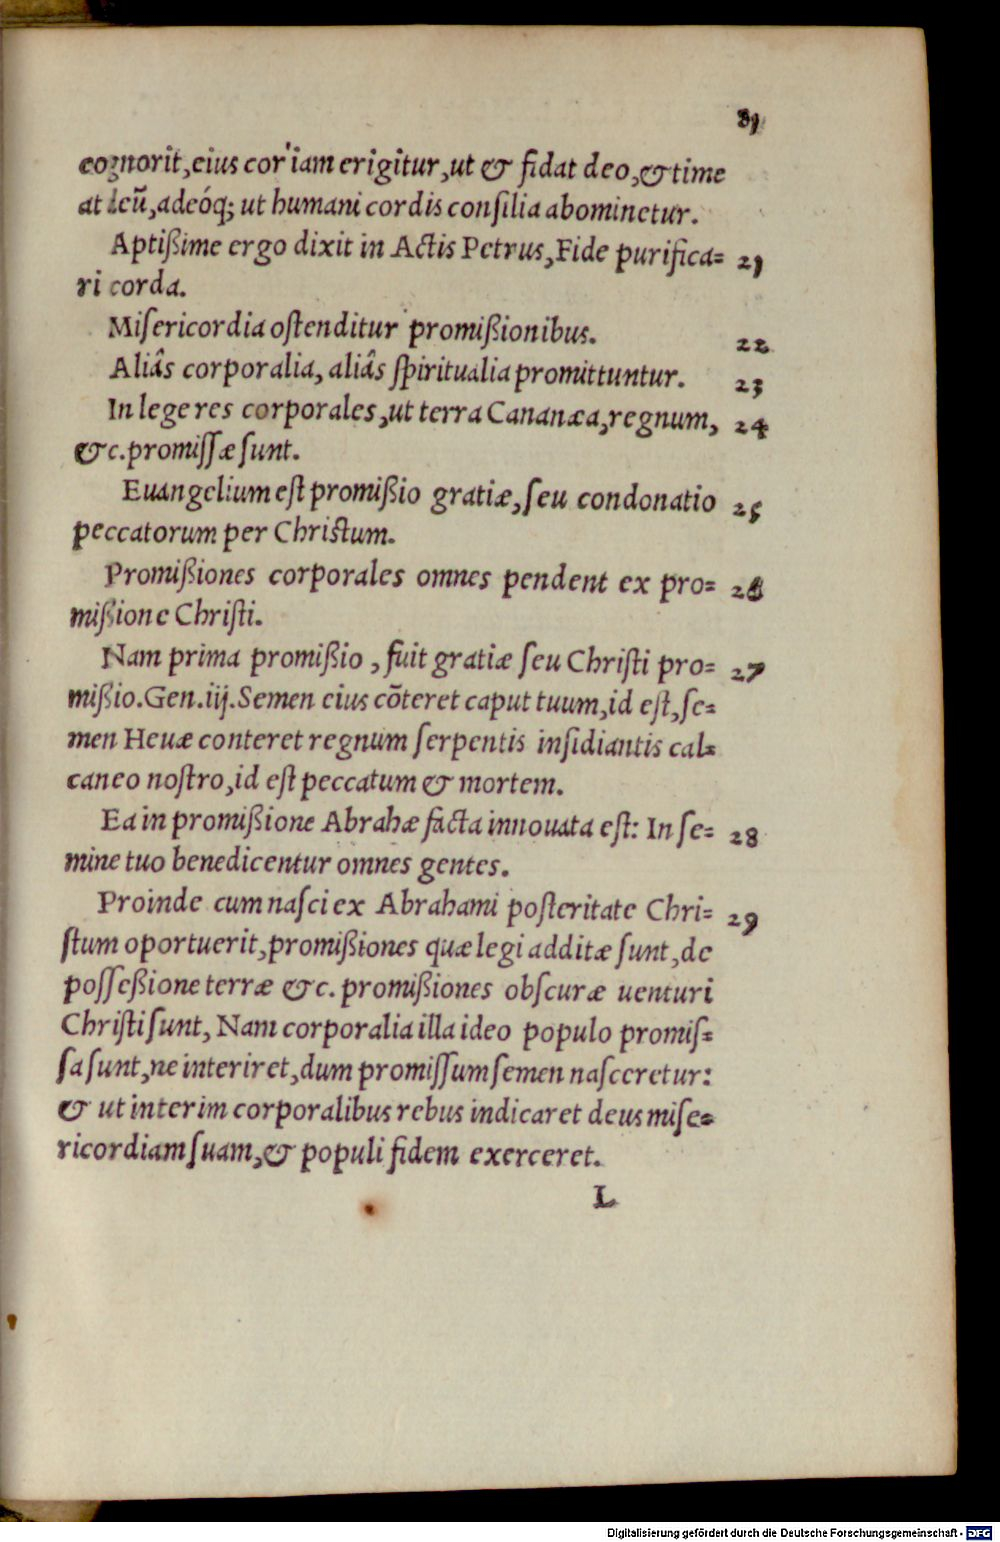 81
cognorit, eius cor iam erigitur, ut & fidat deo, & time
at eũ, adeóq; ut humani cordis consilia abominetur.
Aptißime ergo dixit in Actis Petrus, Fide purifica= 21
ri corda.
Misericordia ostenditur promißionibus. 22
Aliâs corporalia, aliâs spiritualia promittuntur. 23
In lege res corporales, ut terra Cananæa, regnum, 24
&c. promissæ sunt.
Euangelium est promißio gratiæ, seu condonatio 25
peccatorum per Christum.
Promißiones corporales omnes pendent ex pro= 26
mißione Christi.
Nam prima promißio, fuit gratiæ seu Christi pro= 27
mißio. Gen. iij. Semen eius cõteret caput tuum, id est, se=
men Heuæ conteret regnum serpentis insidiantis cal=
caneo nostro, id est peccatum & mortem.
Ea in promißione Abrahæ facta innouata est: In se= 28
mine tuo benedicentur omnes gentes.
Proinde cum nasci ex Abrahami posteritate Chri= 29
stum oportuerit, promißiones quæ legi additæ sunt, de
posseßione terræ &c. promißiones obscuræ uenturi
Christi sunt, Nam corporalia illa ideo populo promis=
sa sunt, ne interiret, dum promissum semen nasceretur:
& ut interim corporalibus rebus indicaret deus mise=
ricordiam suam, & populi fidem exerceret.
L
Digitalisierung gefördert durch die Deutsche Forschungsgemeinschaft - DFG